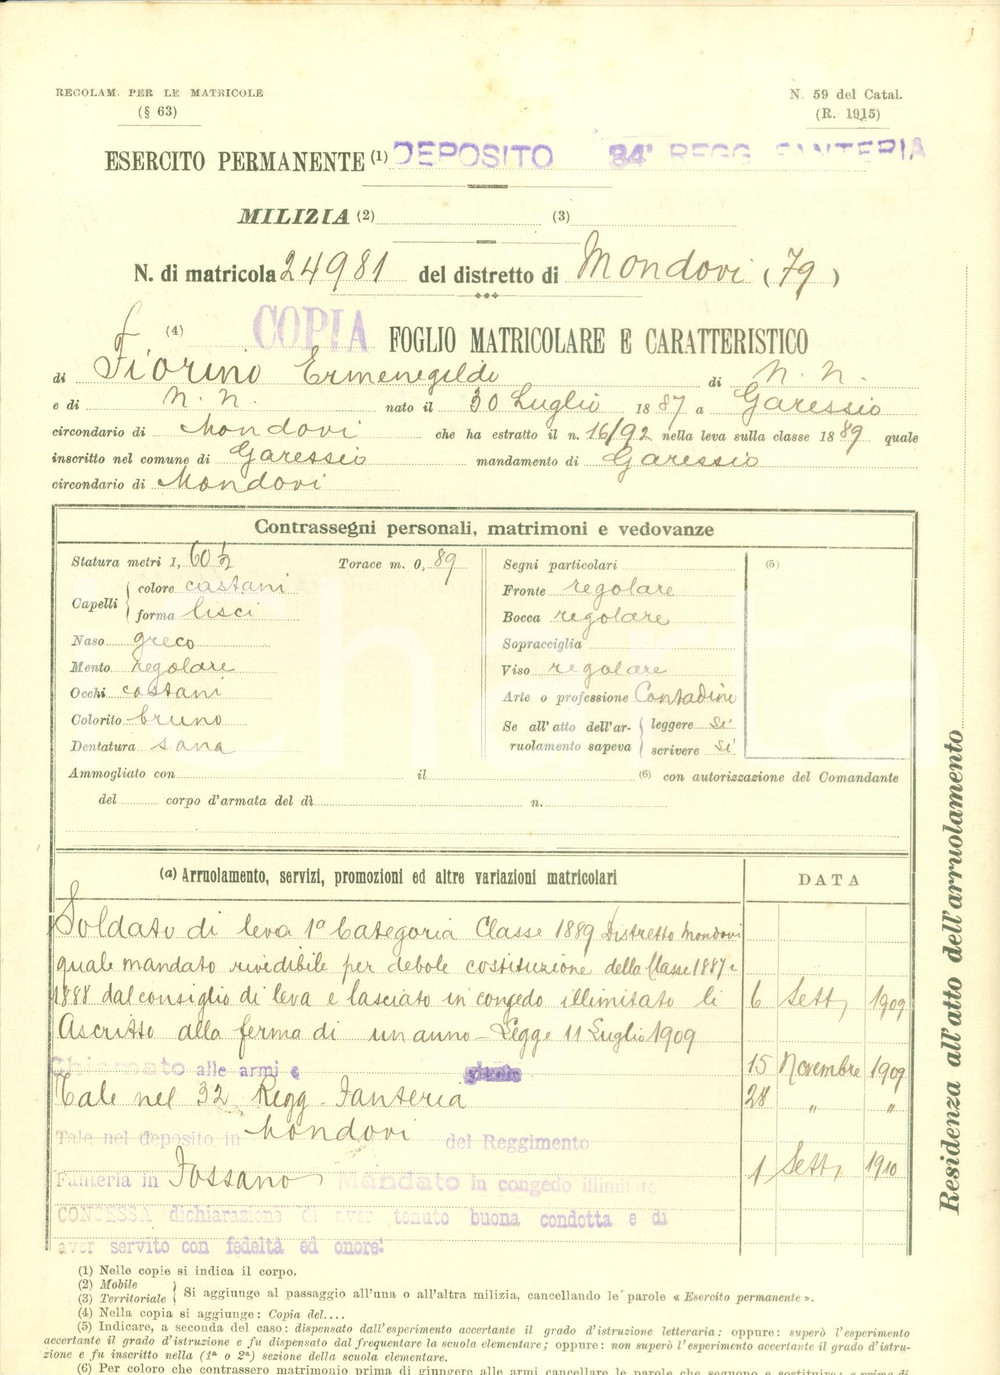 REGOLAM. PER LE MATRICOLE
(§ 63)
N. 59 del Catal.
(R. 1915)
ESERCITO PERMANENTE (1) DEPOSITO 34° REGG. FANTERIA
MILIZIA (2) (3)
N. di matricola 24981 del distretto di Mondovì (79)
(4) COPIA FOGLIO MATRICOLARE E CARATTERISTICO
di Fiorino Ermenegildo di N. N.
e di N. N. nato il 30 Luglio 1887 a Garessio
circondario di Mondovì che ha estratto il n. 16/92 nella leva sulla classe 1889 quale
inscritto nel comune di Garessio mandamento di Garessio
circondario di Mondovì
Contrassegni personali, matrimoni e vedovanze
Statura metri 1, 60 ½ Torace m. 0, 89
Capelli colore castani
forma lisci
Naso greco
Mento regolare
Occhi castani
Colorito bruno
Dentatura sana
Segni particolari
Fronte regolare
Bocca regolare
Sopracciglia
Viso regolare
Arte o professione Contadino
Se all'atto dell'arruolamento sapeva leggere sì
scrivere sì
(5)
Ammogliato con il (6) con autorizzazione del Comandante
del corpo d'armata del dì n.
(a) Arruolamento, servizi, promozioni ed altre variazioni matricolari
DATA
Soldato di leva 1a Categoria Classe 1889 Distretto Mondovì
quale mandato rividibile per debole costituzione della Classe 1887 e
1888 dal consiglio di leva e lasciato in congedo illimitato li 6 Sett, 1909
Ascritto alla ferma di un anno - Legge 11 Luglio 1909
Chiamato alle armi e giunto 15 Novembre 1909
Tale nel 32 Regg. Fanteria 28 " "
Tale nel deposito in Mondovì del Reggimento
Fanteria in Fossano Mandato in congedo illimitato 1 Sett, 1910
CONCESSA dichiarazione di aver tenuto buona condotta e di
aver servito con fedeltà ed onore.
Residenza all'atto dell'arruolamento
(1) Nelle copie si indica il corpo.
(2) Mobile
(3) Territoriale Si aggiunge al passaggio all'una o all'altra milizia, cancellando le parole « Esercito permanente ».
(4) Nella copia si aggiunge: Copia del....
(5) Indicare, a seconda del caso: dispensato dall'esperimento accertante il grado d'istruzione letteraria: oppure: superò l'esperimento
accertante il grado d'istruzione e fu dispensato dal frequentare la scuola elementare; oppure: non superò l'esperimento accertante il grado d'istru-
zione e fu inscritto nella (1a o 2a) sezione della scuola elementare.
(6) Per coloro che contrassero matrimonio prima di giungere alle armi cancellare le parole che seguono e sostituire: « prima di